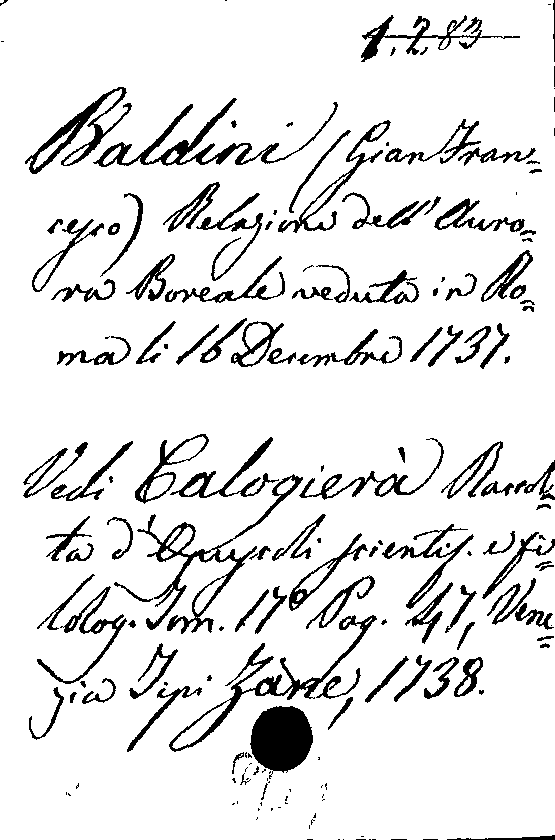 1.2.83
Baldini (Gian Fran=
cesco) Relazione dell' Auro=
ra Boreale veduta in Ro=
ma li 16 Decembre 1737.
Vedi Calogierà Raccol=
ta d'Opuscoli scientif. e fi=
lolog. Tom. 17º Pag. 47, Vene=
zia Tipi Zane, 1738.